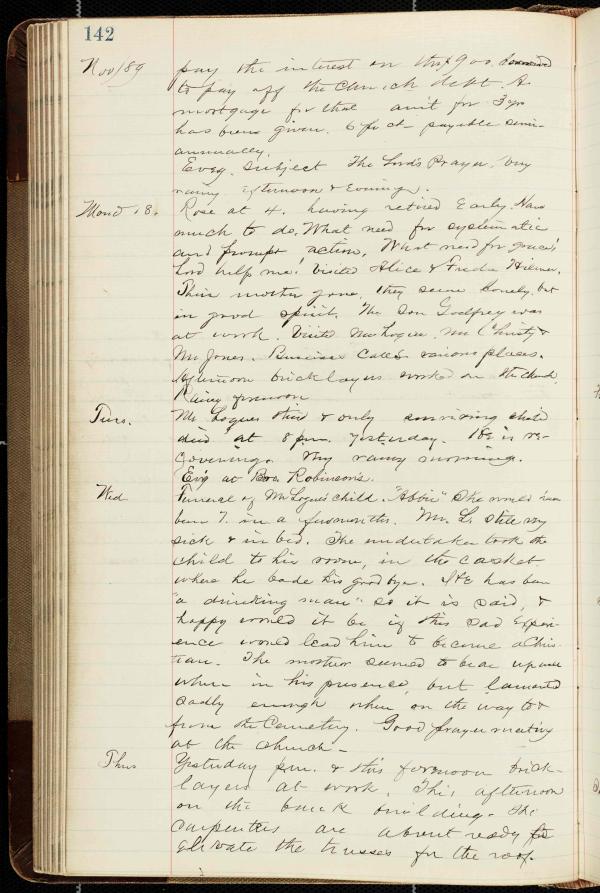 142
Nov/89 pay the interest on this $900. borrowed
to pay off the Church debt. A
mortgage for that amt for 3 yrs
has been given. 6 pr ct. payable semi-
annually.
Eveg. Subject The Lord's Prayer. Very
rainy afternoon & Evening.
Mond 18. Rose at 4. having retired Early. Have
much to do. What need for systematic
and prompt action. What need for grace!
Lord help me! Visited Alice & Freda
Their mother gone. They seem lonely but
in good spirit. The son Godfrey was
at work. Visited Mr Logue. Mr Christy &
Mr Jones. Business Calls various places.
Afternoon bricklayers worked on the church.
Rainy forenoon
Tues. Mr Logues third & only surviving child
died at 8 pm. yesterday. He is re-
covering. Very rainy morning.
Ev'g at Bro. Robinson's.
Wed Funeral of Mr Logue's child. "Abbie" She would have
been 7. in a few months. Mr. L. still very
sick & in bed. The undertaker took the
child to his room, in the casket
where he bade his goodbye. He has been
"a drinking man" so it is said, &
happy would it be if this sad Experi-
ence would lead him to become a Chris-
tian. The mother seemed to bear up well
when in his presence, but lamented
sadly enough when on the way to &
from the Cemetery. Good prayer meeting
at the church -
Thus Yesterday pm. & this forenoon brick-
layers at work. This afternoon
on the building. The
carpenters are about ready for
the trusses for the roof.